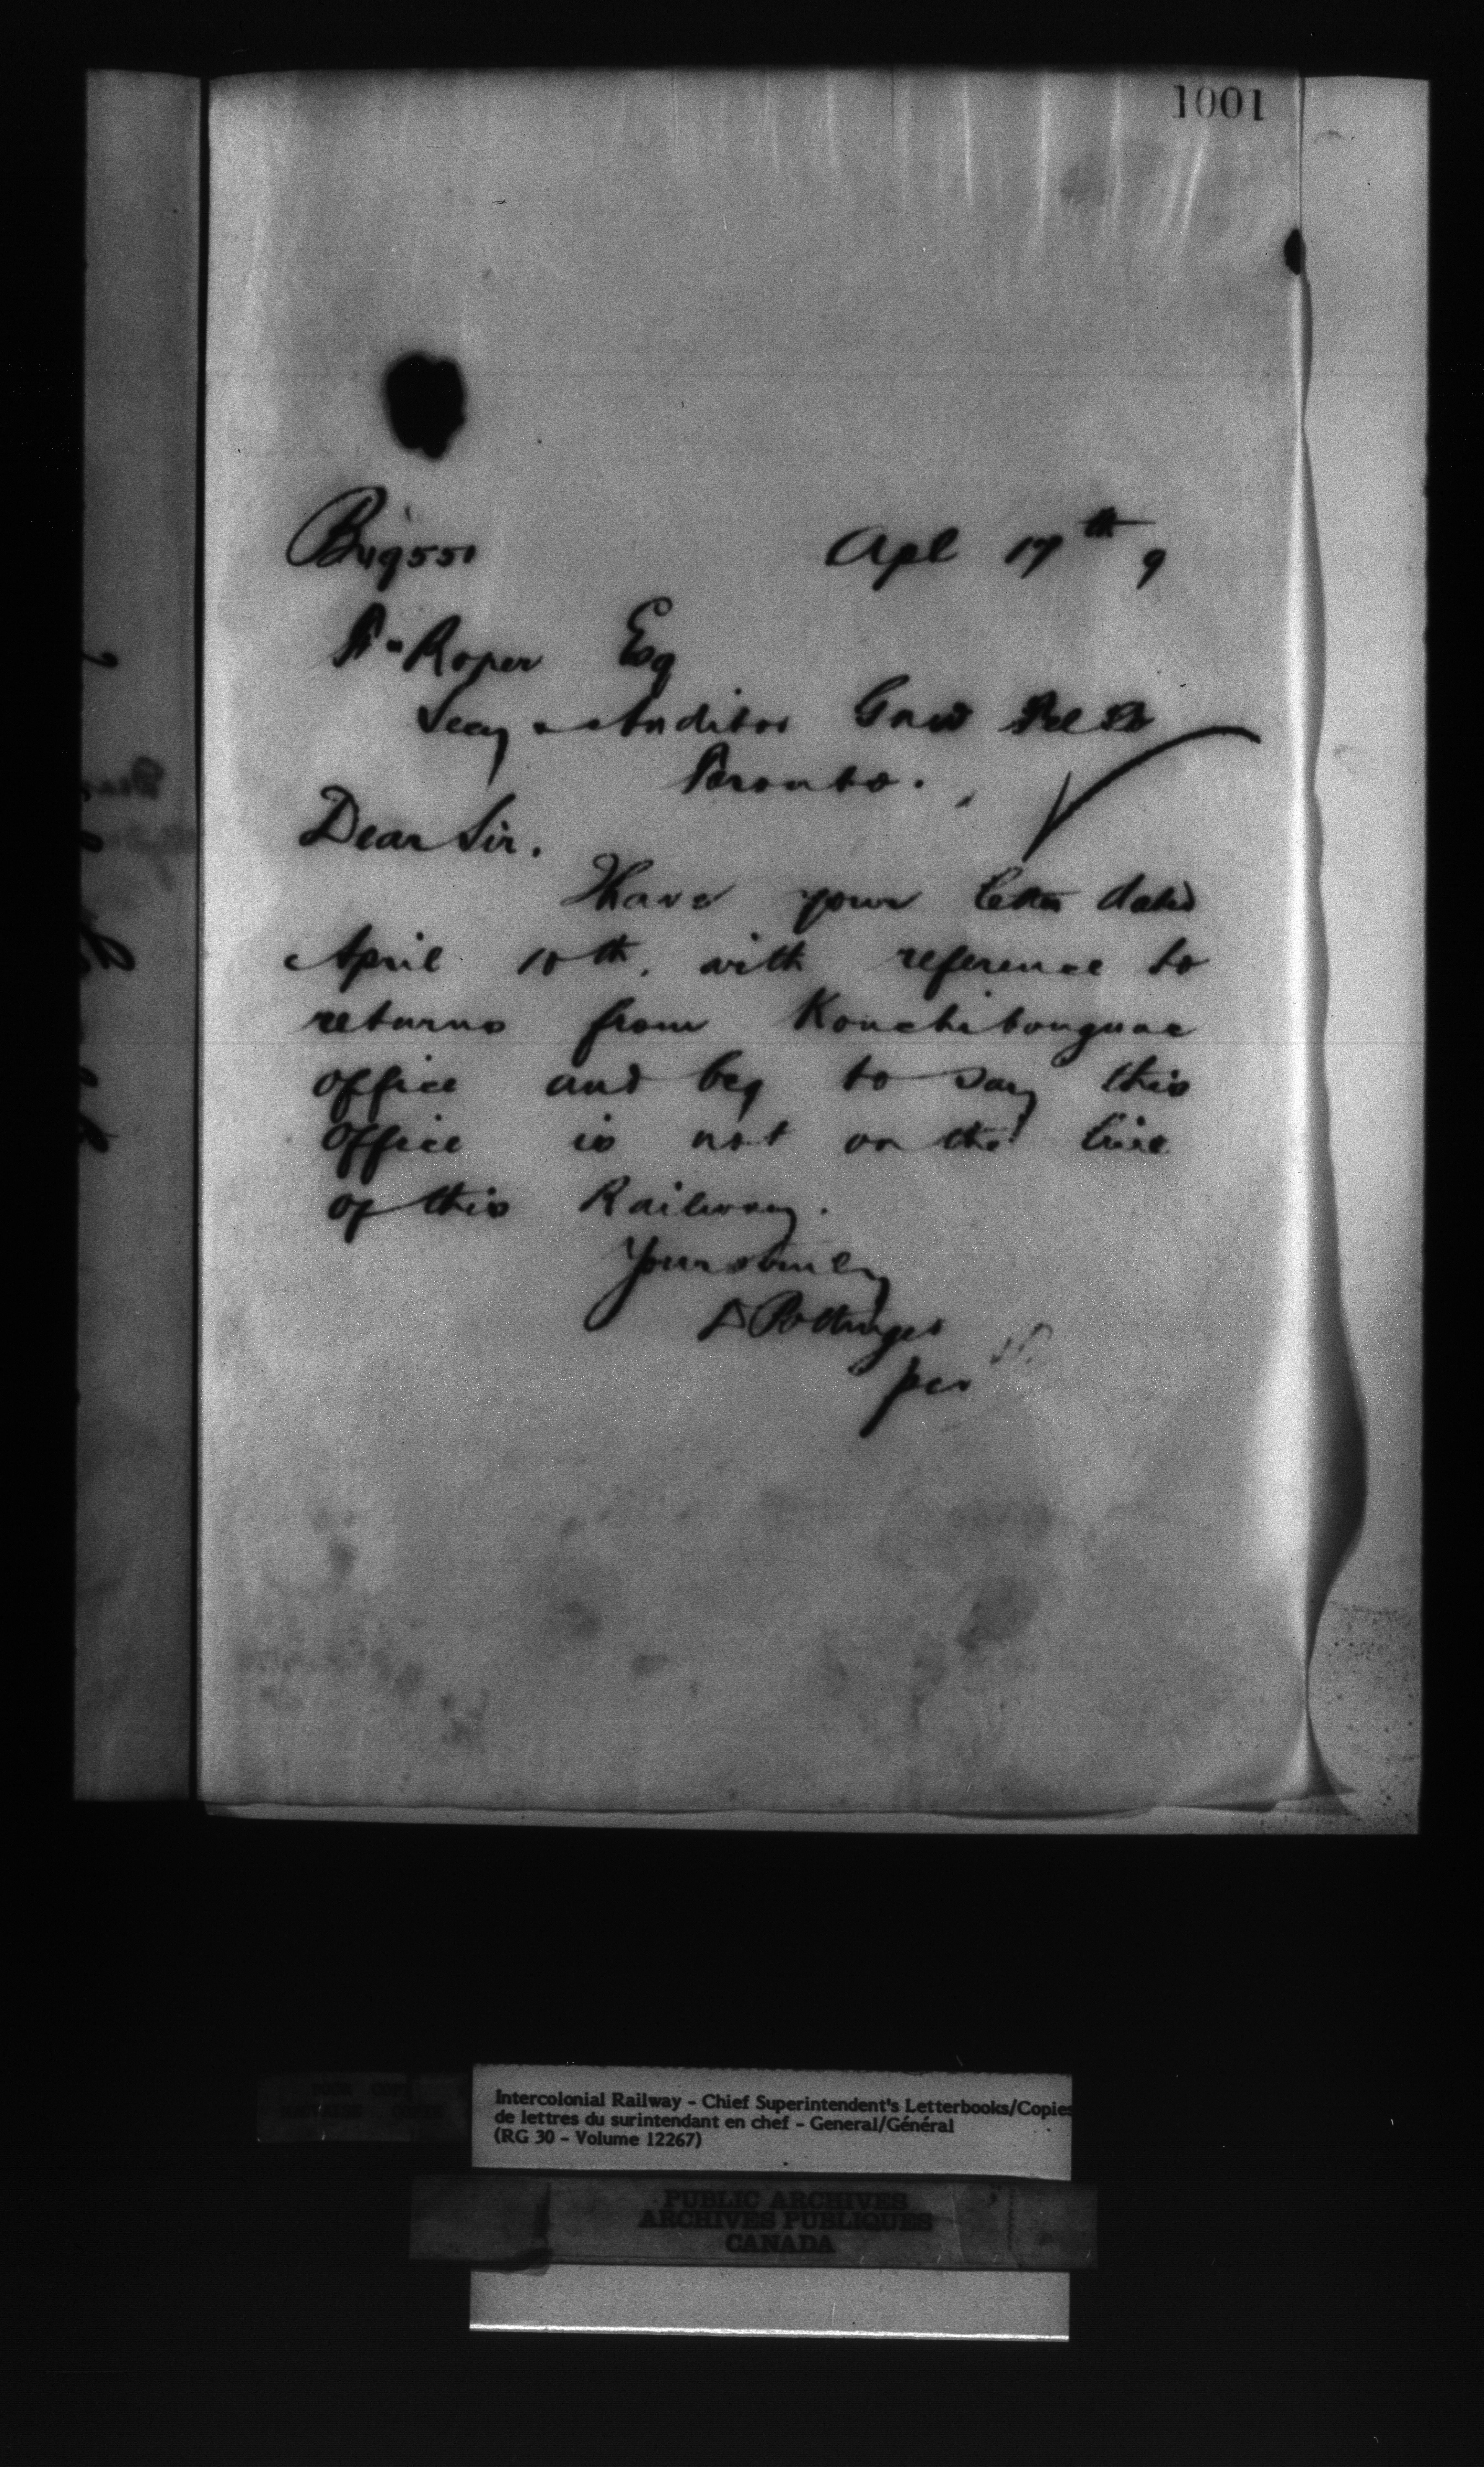 1001
B49551
Apl 17th 9
A. Roper Esq
Secy & Auditor GNW Tel Co
Toronto.
Dear Sir.
I have your letter dated
April 10th, with reference to
returns from Kouchibouguac
office and beg to say this
office is not on the line
of this Railway.
Yours truly
D Pottinger
per
Intercolonial Railway - Chief Superintendent's Letterbooks/Copies
de lettres du surintendant en chef - General/Général
(RG 30 - Volume 12267)
PUBLIC ARCHIVES
ARCHIVES PUBLIQUES
CANADA